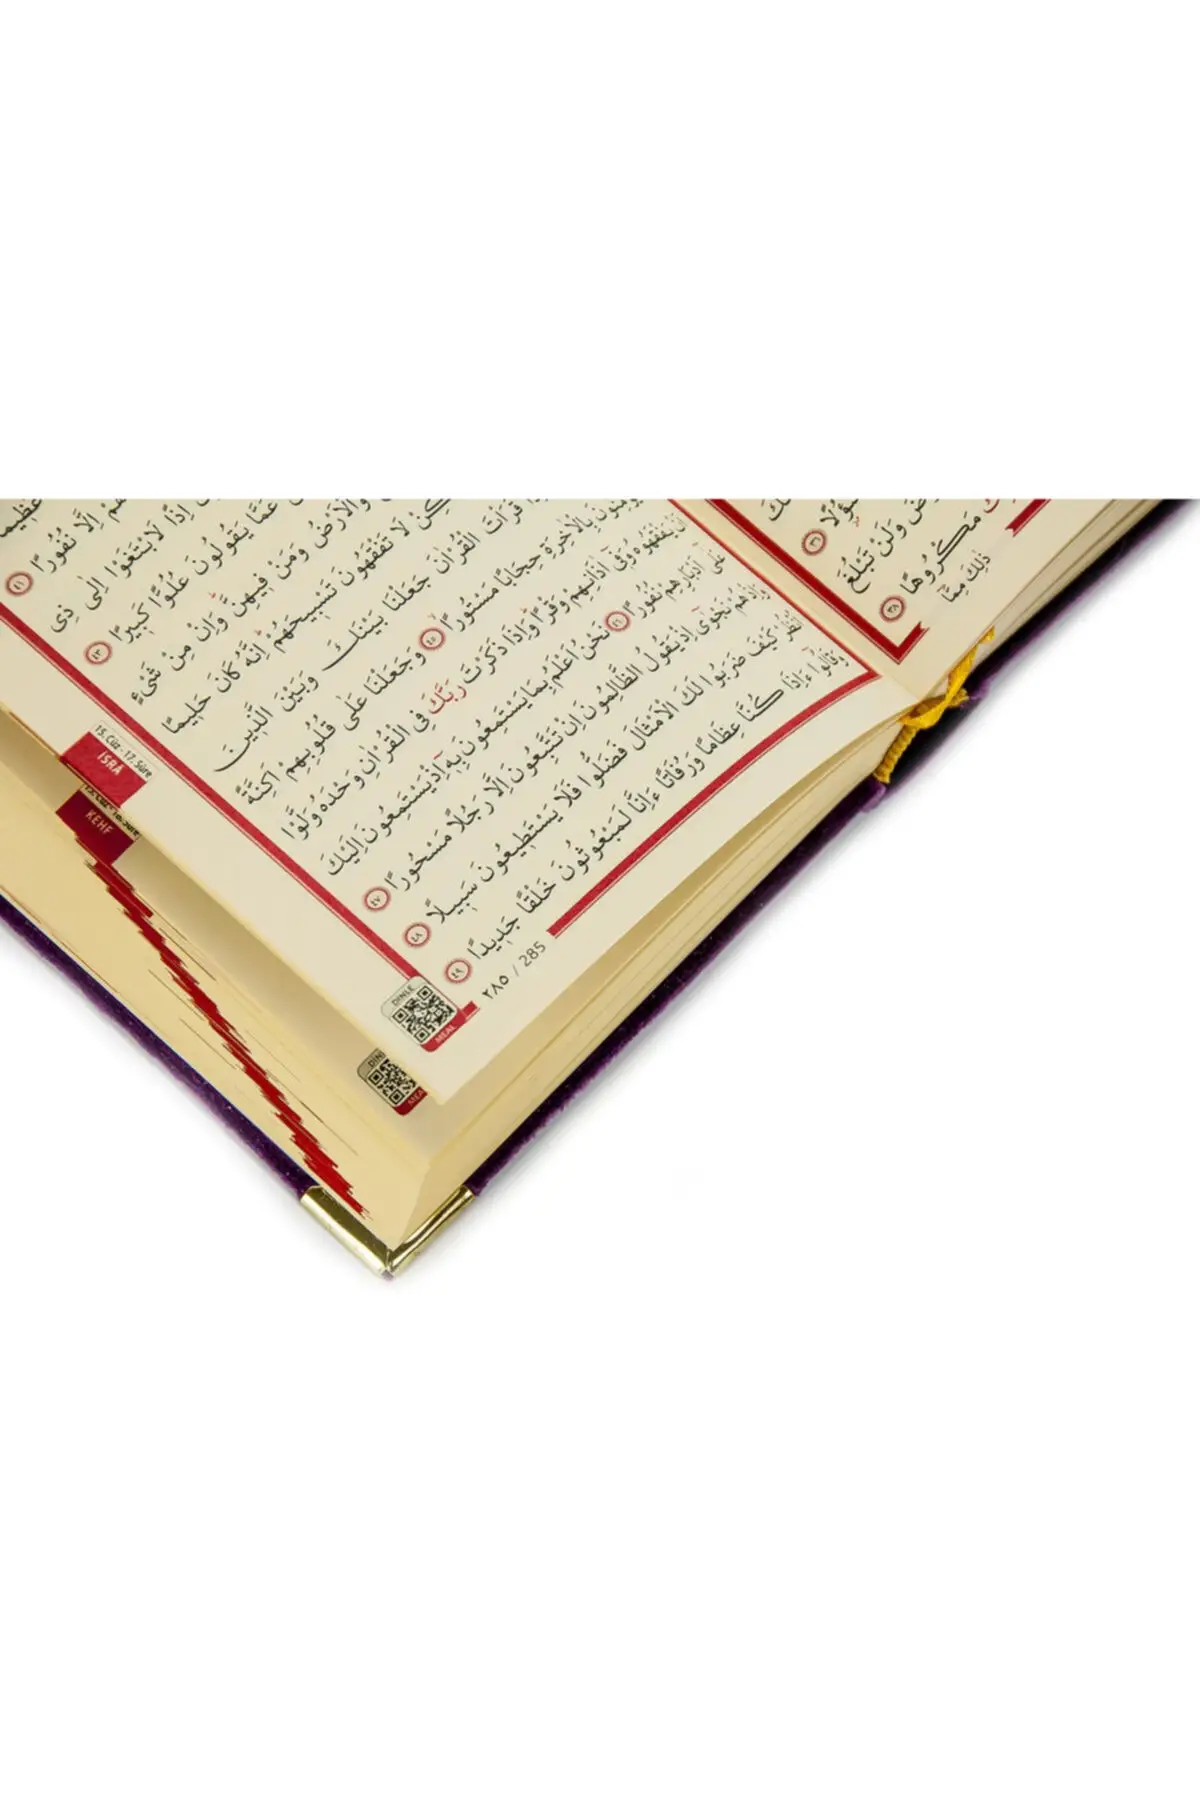 عَظِيمًا
هُمْ اِلَّا نُفُورًا ٤١
اِذًا لَابْتَغَوْا اِلٰى ذِي
عَمَّا يَقُولُونَ عُلُوًّا كَبِيرًا ٤٣
وَالْاَرْضُ وَمَنْ فِيهِنَّ وَاِنْ مِنْ شَيْءٍ
لَا تَفْقَهُونَ تَسْبِيحَهُمْ اِنَّهُ كَانَ حَلِيمًا
قَرَأْتَ الْقُرْاٰنَ جَعَلْنَا بَيْنَكَ وَبَيْنَ الَّذِينَ
بِالْاٰخِرَةِ حِجَابًا مَسْتُورًا ٤٥ وَجَعَلْنَا عَلٰى قُلُوبِهِمْ اَكِنَّةً
اَنْ يَفْقَهُوهُ وَفِٓي اٰذَانِهِمْ وَقْرًا وَاِذَا ذَكَرْتَ رَبَّكَ فِي الْقُرْاٰنِ وَحْدَهُ وَلَّوْا
عَلٰٓى اَدْبَارِهِمْ نُفُورًا ٤٦ نَحْنُ اَعْلَمُ بِمَا يَسْتَمِعُونَ بِهِٓ اِذْ يَسْتَمِعُونَ اِلَيْكَ
وَاِذْ هُمْ نَجْوٰٓى اِذْ يَقُولُ الظَّالِمُونَ اِنْ تَتَّبِعُونَ اِلَّا رَجُلًا مَسْحُورًا ٤٧
اُنْظُرْ كَيْفَ ضَرَبُوا لَكَ الْاَمْثَالَ فَضَلُّوا فَلَا يَسْتَطِيعُونَ سَبِيلًا ٤٨
وَقَالُٓوا ءَاِذَا كُنَّا عِظَامًا وَرُفَاتًا ءَاِنَّا لَمَبْعُوثُونَ خَلْقًا جَدِيدًا ٤٩
٢٨٥ / 285
15. Cüz - 17. Sûre
İSRÂ
KEHF
DİNLE
MEAL
٣٦
وَلَنْ تَبْلُغَ
مَكْرُوهًا ٣٨
ذٰلِكَ مِمَّٓا